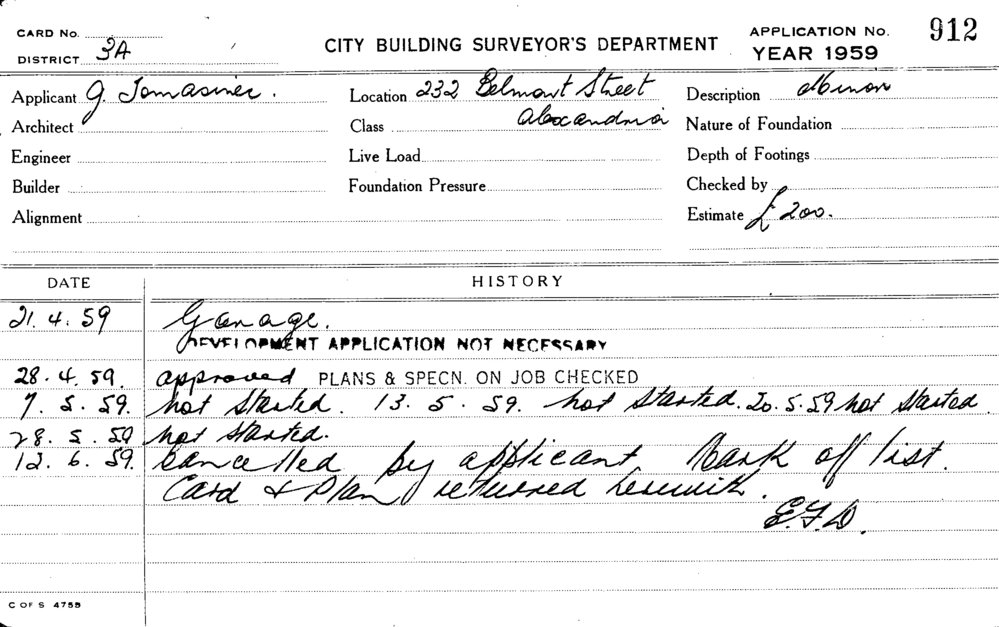 CARD No.
DISTRICT 3A
CITY BUILDING SURVEYOR'S DEPARTMENT
APPLICATION No. 912
YEAR 1959
Applicant G. Tomasinec.
Location 232 Belmont Street
Description Minor
Architect
Class Alexandria
Nature of Foundation
Engineer
Live Load
Depth of Footings
Builder
Foundation Pressure
Checked by
Alignment
Estimate £200.
DATE HISTORY
21.4.59 Garage.
DEVELOPMENT APPLICATION NOT NECESSARY
28.4.59. approved PLANS & SPECN. ON JOB CHECKED
7.5.59. not started. 13.5.59. not started. 20.5.59 not started
28.5.59 not started.
12.6.59. Cancelled by applicant Mark off list.
Card & Plan returned herewith.
E.F.D.
C OF S 4759